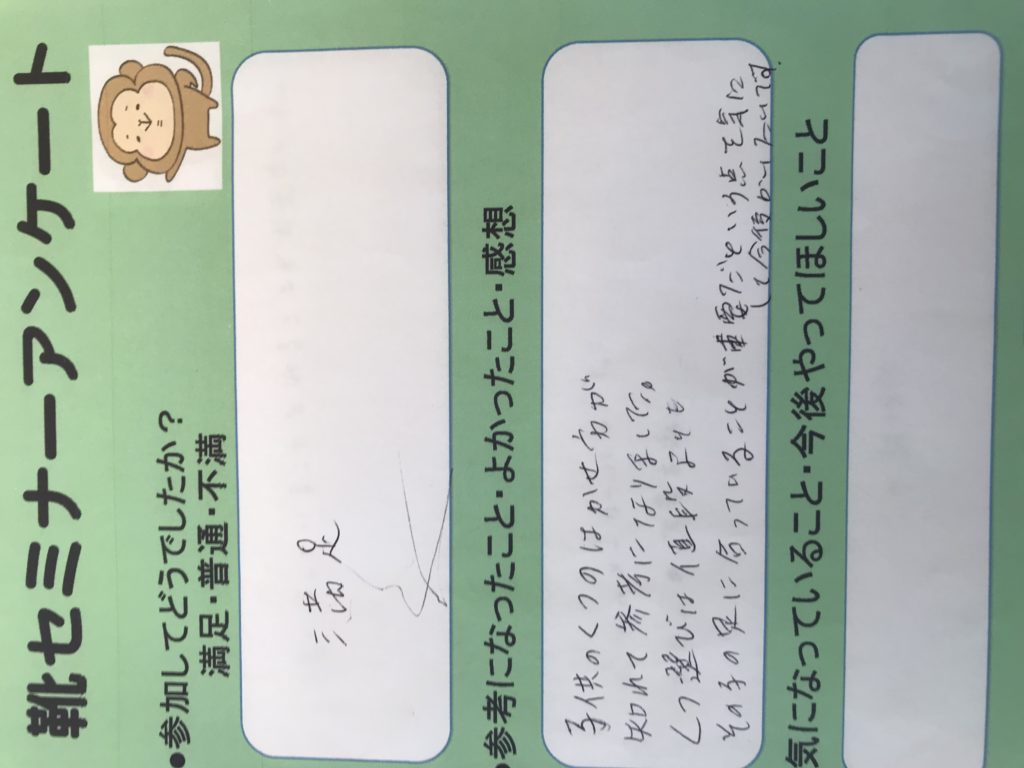 靴セミナーアンケート
•参加してどうでしたか？
満足・普通・不満
満足
•参考になったこと・よかったこと・感想
子供のくつのはかせ方が
知れて参考になりました。
くつ選びは値段よりも
その子の足に合っていることが重要だという点を気に
して今後いきたいです。
気になっていること・今後やってほしいこと